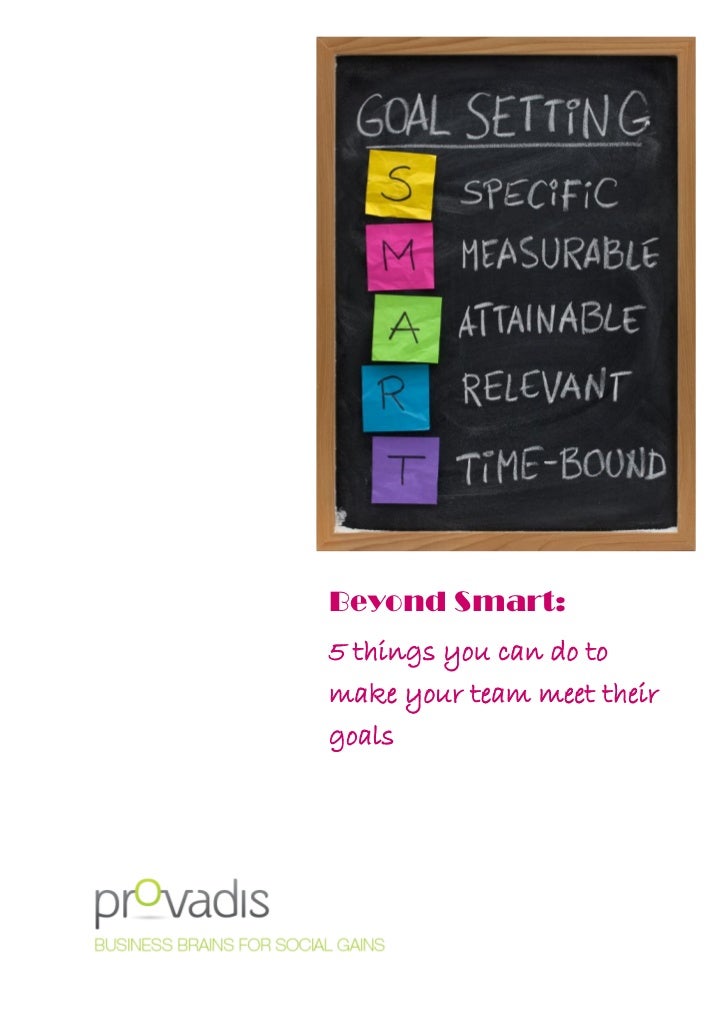 GOAL SETTiNG
S SPECiFiC
M MEASURABLE
A ATTAINABLE
R RELEVANT
T TiME-BOUND
Beyond Smart:
5 things you can do to
make your team meet their
goals
provadis
BUSINESS BRAINS FOR SOCIAL GAINS